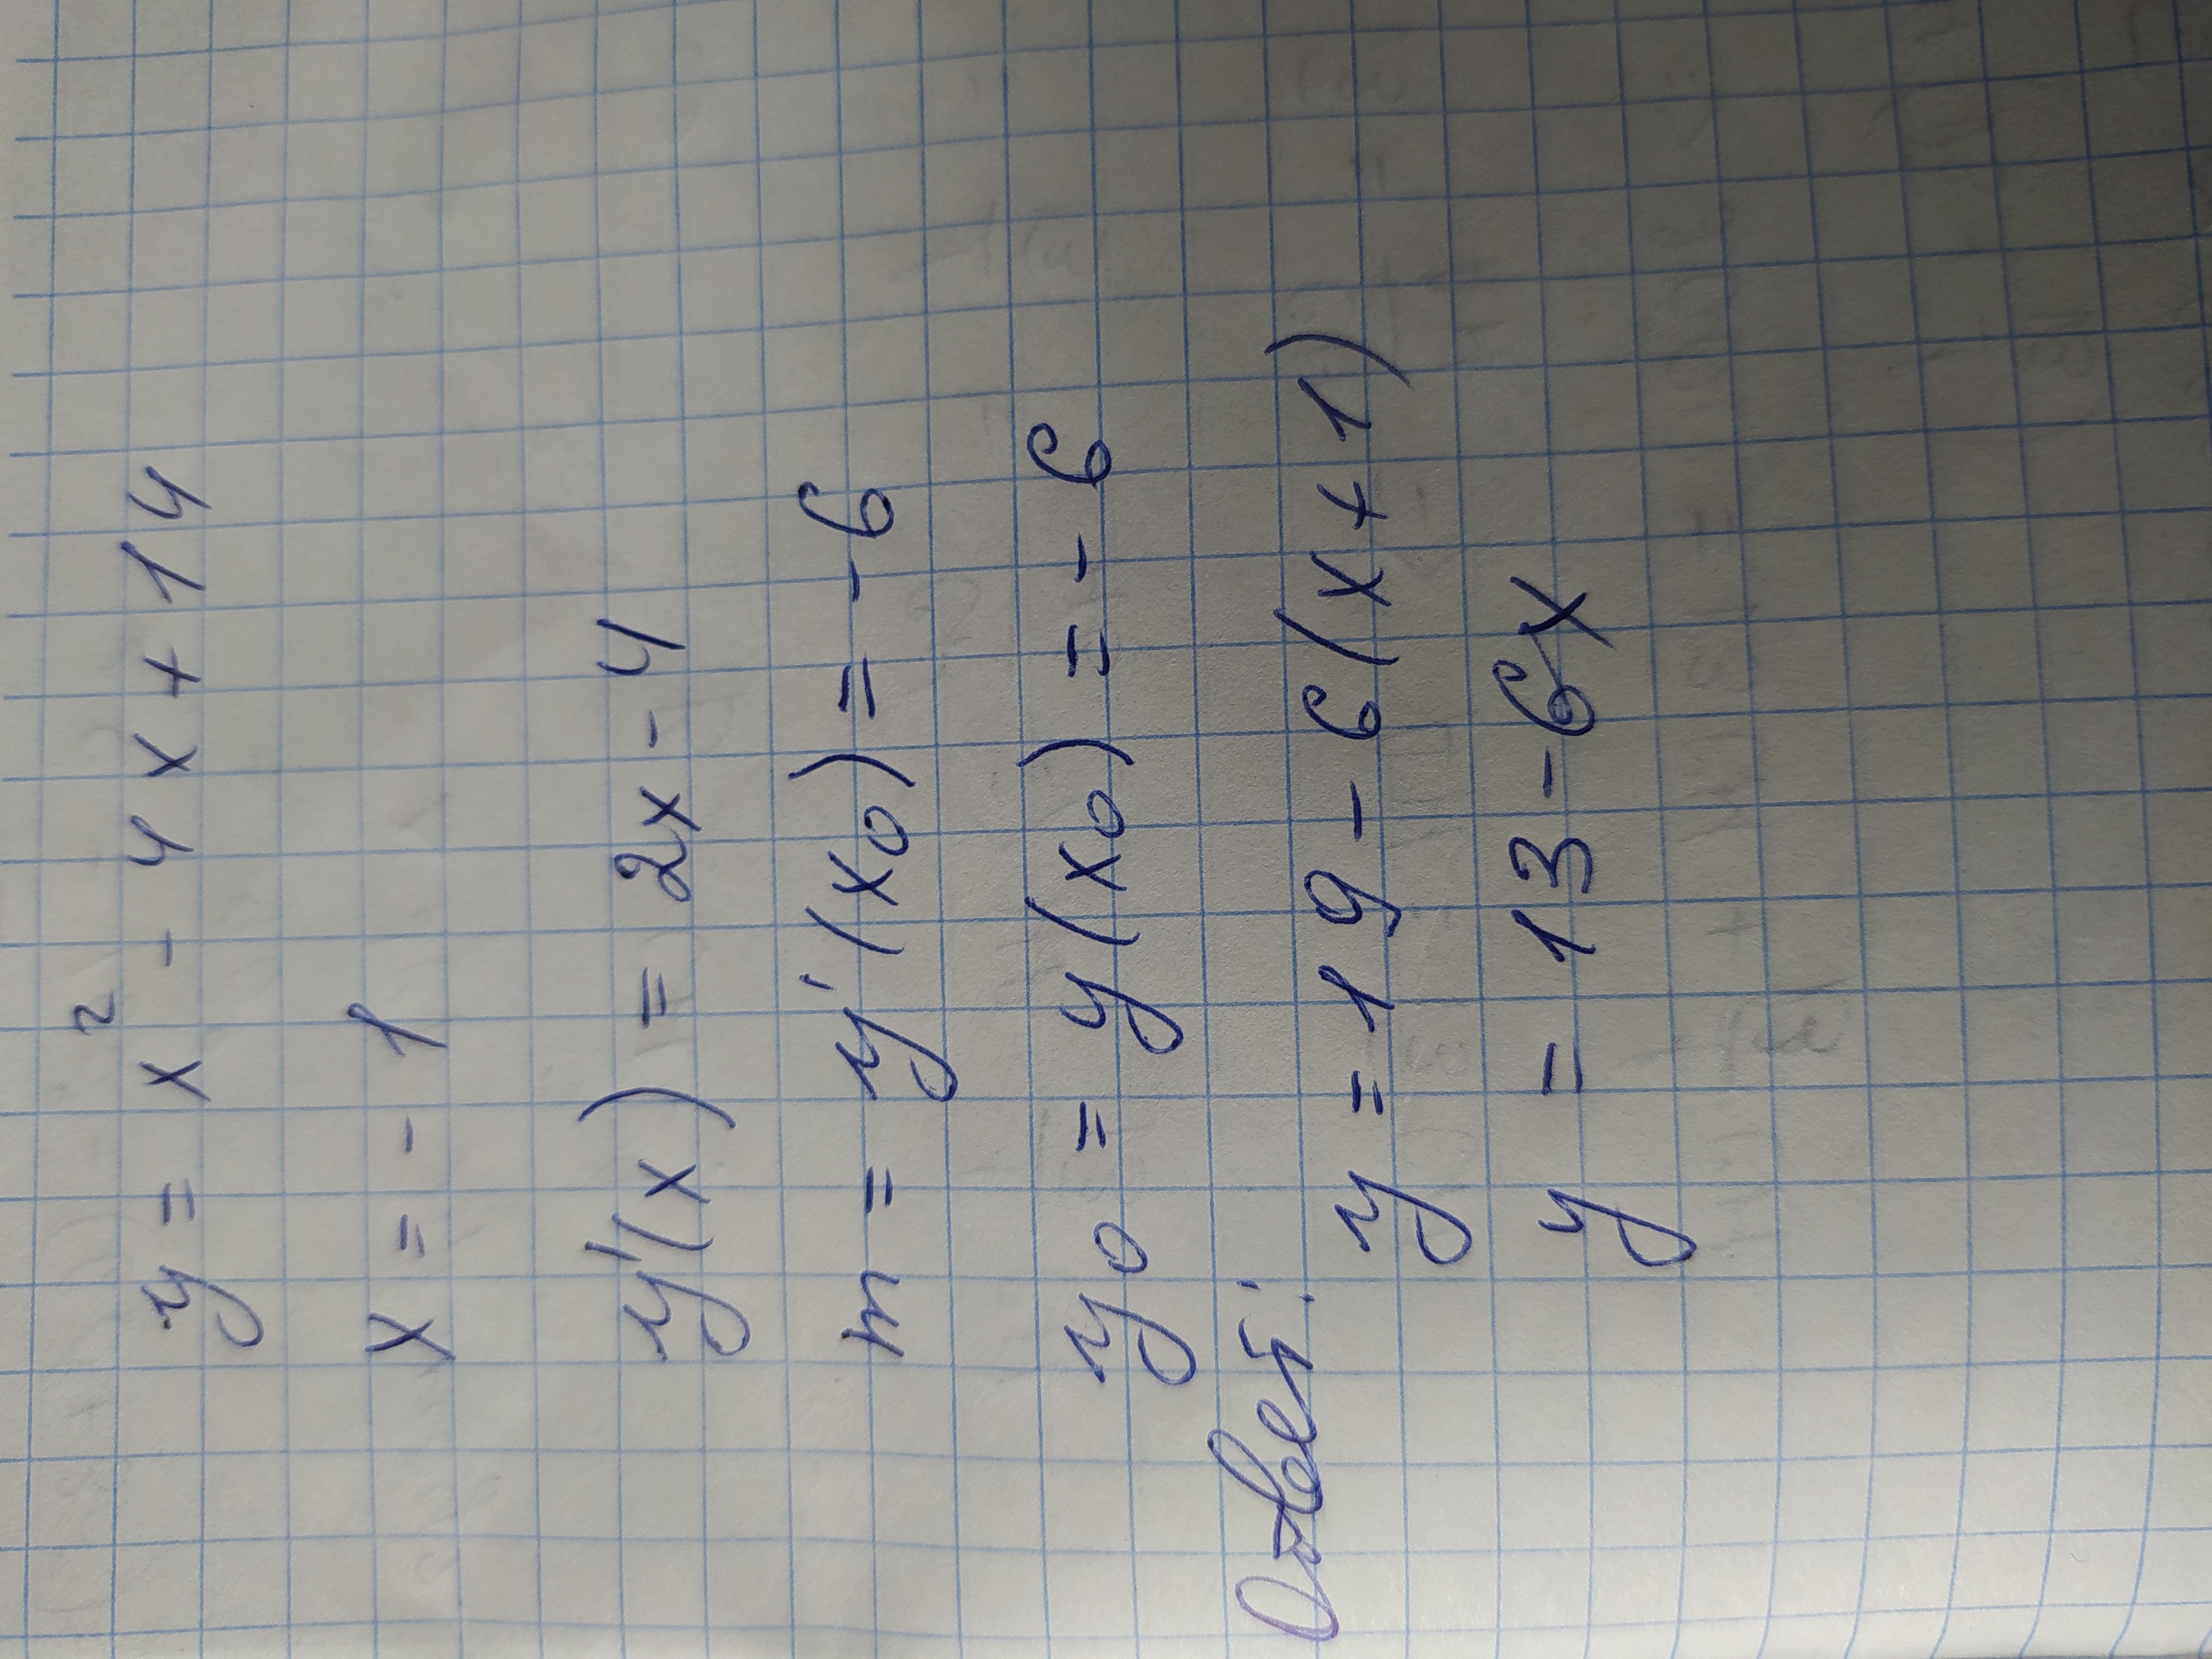 y = x² - 4x + 14
x = - 1
y'(x) = 2x - 4
m = y'(x₀) = - 6
y₀ = y(x₀) = - 6
Ответ: y = 19 - 6(x + 1)
y = 13 - 6x